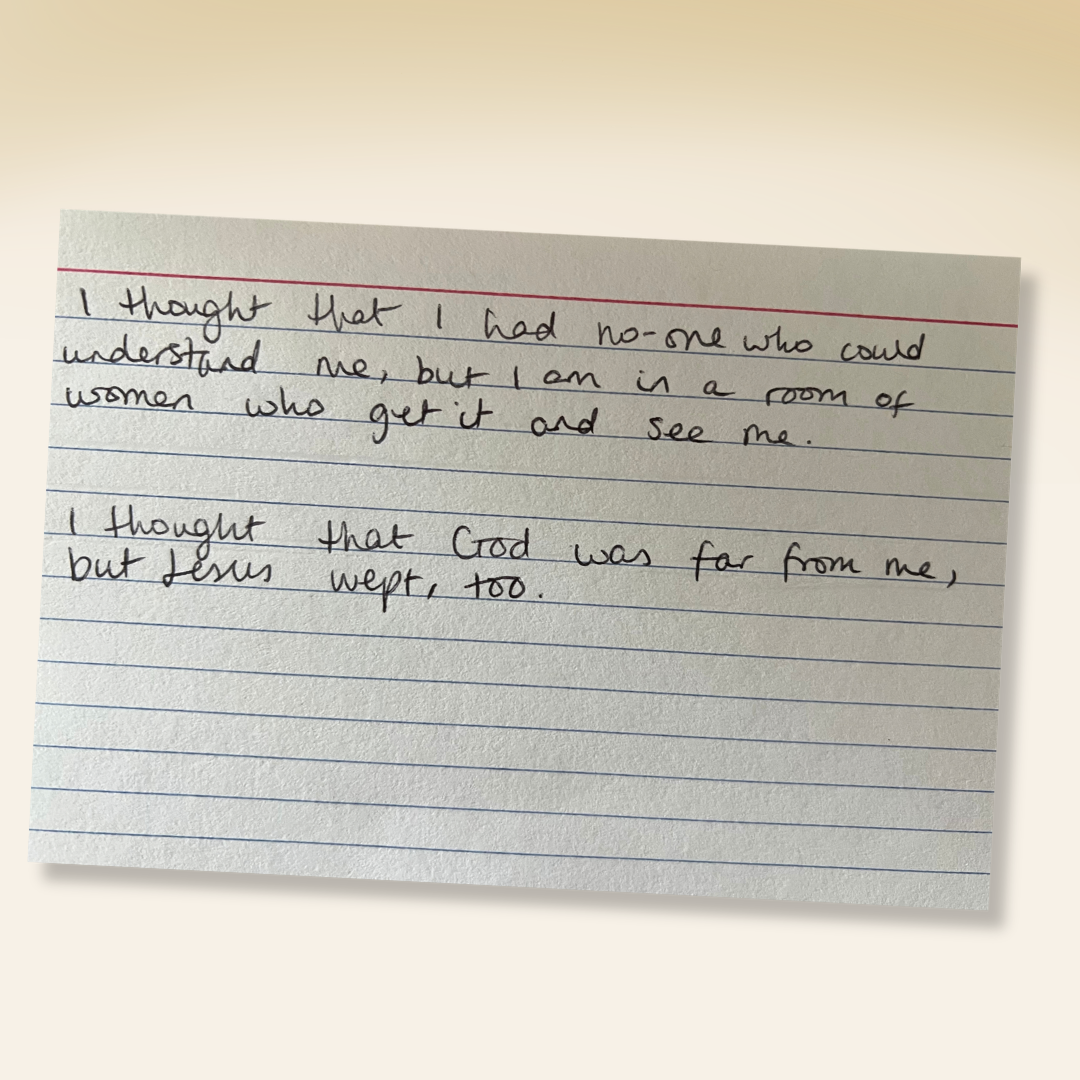 I thought that I had no-one who could
understand me, but I am in a room of
women who get it and see me.
I thought that God was far from me,
but Jesus wept, too.